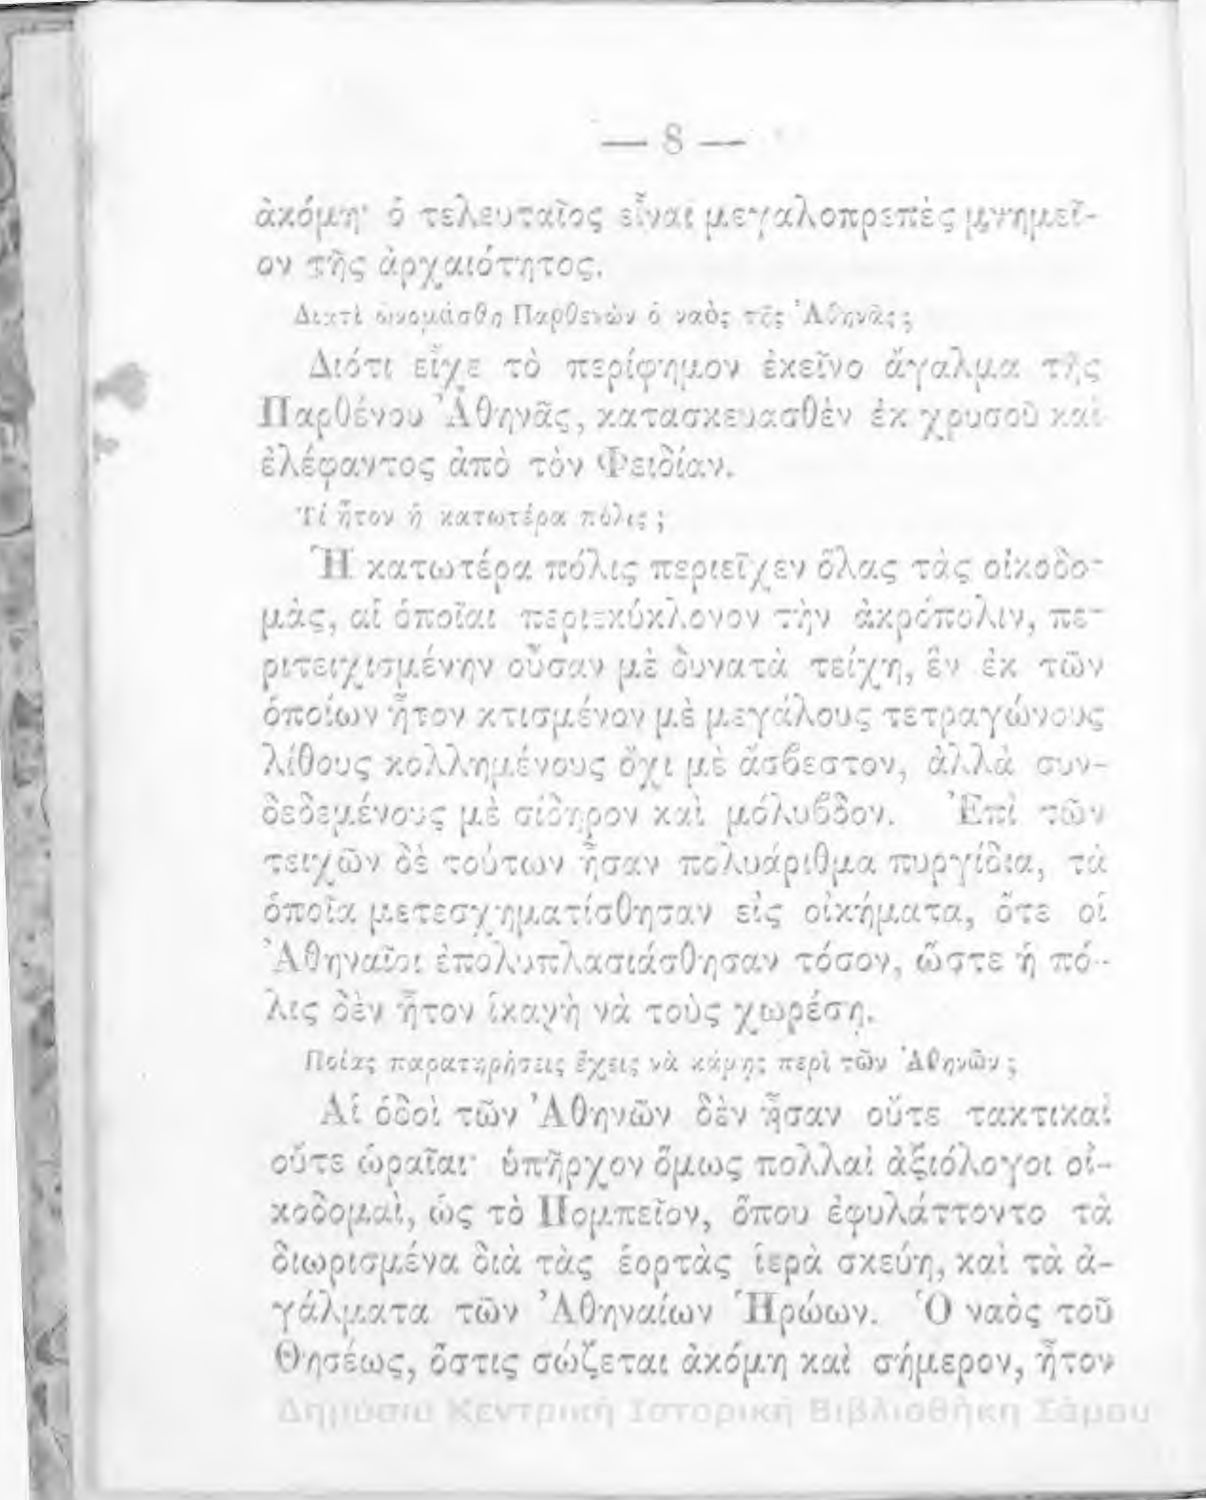 — 8 —
ἀκόμη· ὁ τελευταῖος εἶναι μεγαλοπρεπὲς μνημεῖ-
ον τῆς ἀρχαιότητος.
Διατὶ ὠνομάσθη Παρθενὼν ὁ ναὸς τῆς Ἀθηνᾶς;
Διότι εἶχε τὸ περίφημον ἐκεῖνο ἄγαλμα τῆς
Παρθένου Ἀθηνᾶς, κατασκευασθὲν ἐκ χρυσοῦ καὶ
ἐλέφαντος ἀπὸ τὸν Φειδίαν.
Τί ἦτον ἡ κατωτέρα πόλις;
Ἡ κατωτέρα πόλις περιεῖχεν ὅλας τὰς οἰκοδο-
μὰς, αἱ ὁποῖαι περιεκύκλονον τὴν ἀκρόπολιν, πε-
ριτειχισμένην οὖσαν μὲ δυνατὰ τείχη, ἓν ἐκ τῶν
ὁποίων ἦτον κτισμένον μὲ μεγάλους τετραγώνους
λίθους κολλημένους ὄχι μὲ ἄσβεστον, ἀλλὰ συν-
δεδεμένους μὲ σίδηρον καὶ μόλυβδον. Ἐπὶ τῶν
τειχῶν δὲ τούτων ἦσαν πολυάριθμα πυργίδια, τὰ
ὁποῖα μετεσχηματίσθησαν εἰς οἰκήματα, ὅτε οἱ
Ἀθηναῖοι ἐπολυπλασιάσθησαν τόσον, ὥστε ἡ πό-
λις δὲν ἦτον ἱκανὴ νὰ τοὺς χωρέσῃ.
Ποίας παρατηρήσεις ἔχεις νὰ κάμῃς περὶ τῶν Ἀθηνῶν;
Αἱ ὁδοὶ τῶν Ἀθηνῶν δὲν ἦσαν οὔτε τακτικαὶ
οὔτε ὡραῖαι· ὑπῆρχον ὅμως πολλαὶ ἀξιόλογοι οἰ-
κοδομαὶ, ὡς τὸ Πομπεῖον, ὅπου ἐφυλάττοντο τὰ
διωρισμένα διὰ τὰς ἑορτὰς ἱερὰ σκεύη, καὶ τὰ ἀ-
γάλματα τῶν Ἀθηναίων Ἡρώων. Ὁ ναὸς τοῦ
Θησέως, ὅστις σώζεται ἀκόμη καὶ σήμερον, ἦτον
Δημόσια Κεντρική Ιστορική Βιβλιοθήκη Σάμου